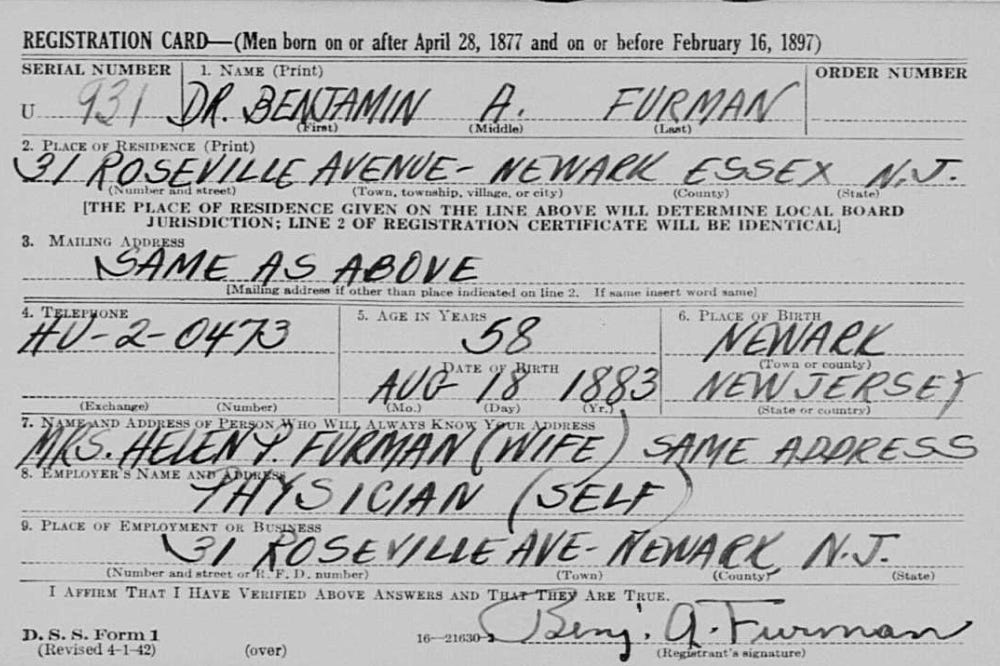 REGISTRATION CARD—(Men born on or after April 28, 1877 and on or before February 16, 1897)
SERIAL NUMBER 1. NAME (Print) ORDER NUMBER
U 931 DR. BENJAMIN A. FURMAN
(First) (Middle) (Last)
2. PLACE OF RESIDENCE (Print)
31 ROSEVILLE AVENUE- NEWARK ESSEX N.J.
(Number and street) (Town, township, village, or city) (County) (State)
[THE PLACE OF RESIDENCE GIVEN ON THE LINE ABOVE WILL DETERMINE LOCAL BOARD
JURISDICTION; LINE 2 OF REGISTRATION CERTIFICATE WILL BE IDENTICAL]
3. MAILING ADDRESS
SAME AS ABOVE
[Mailing address if other than place indicated on line 2. If same insert word same]
4. TELEPHONE 5. AGE IN YEARS 6. PLACE OF BIRTH
HU-2-0473 58 NEWARK
DATE OF BIRTH (Town or county)
AUG 18 1883 NEW JERSEY
(Exchange) (Number) (Mo.) (Day) (Yr.) (State or country)
7. NAME AND ADDRESS OF PERSON WHO WILL ALWAYS KNOW YOUR ADDRESS
MRS. HELEN P. FURMAN (WIFE) SAME ADDRESS
8. EMPLOYER'S NAME AND ADDRESS
PHYSICIAN (SELF)
9. PLACE OF EMPLOYMENT OR BUSINESS
31 ROSEVILLE AVE- NEWARK, N.J.
(Number and street or R. F. D. number) (Town) (County) (State)
I AFFIRM THAT I HAVE VERIFIED ABOVE ANSWERS AND THAT THEY ARE TRUE.
D. S. S. Form 1 16—21630-2 Benj. A. Furman
(Revised 4-1-42) (over) (Registrant's signature)